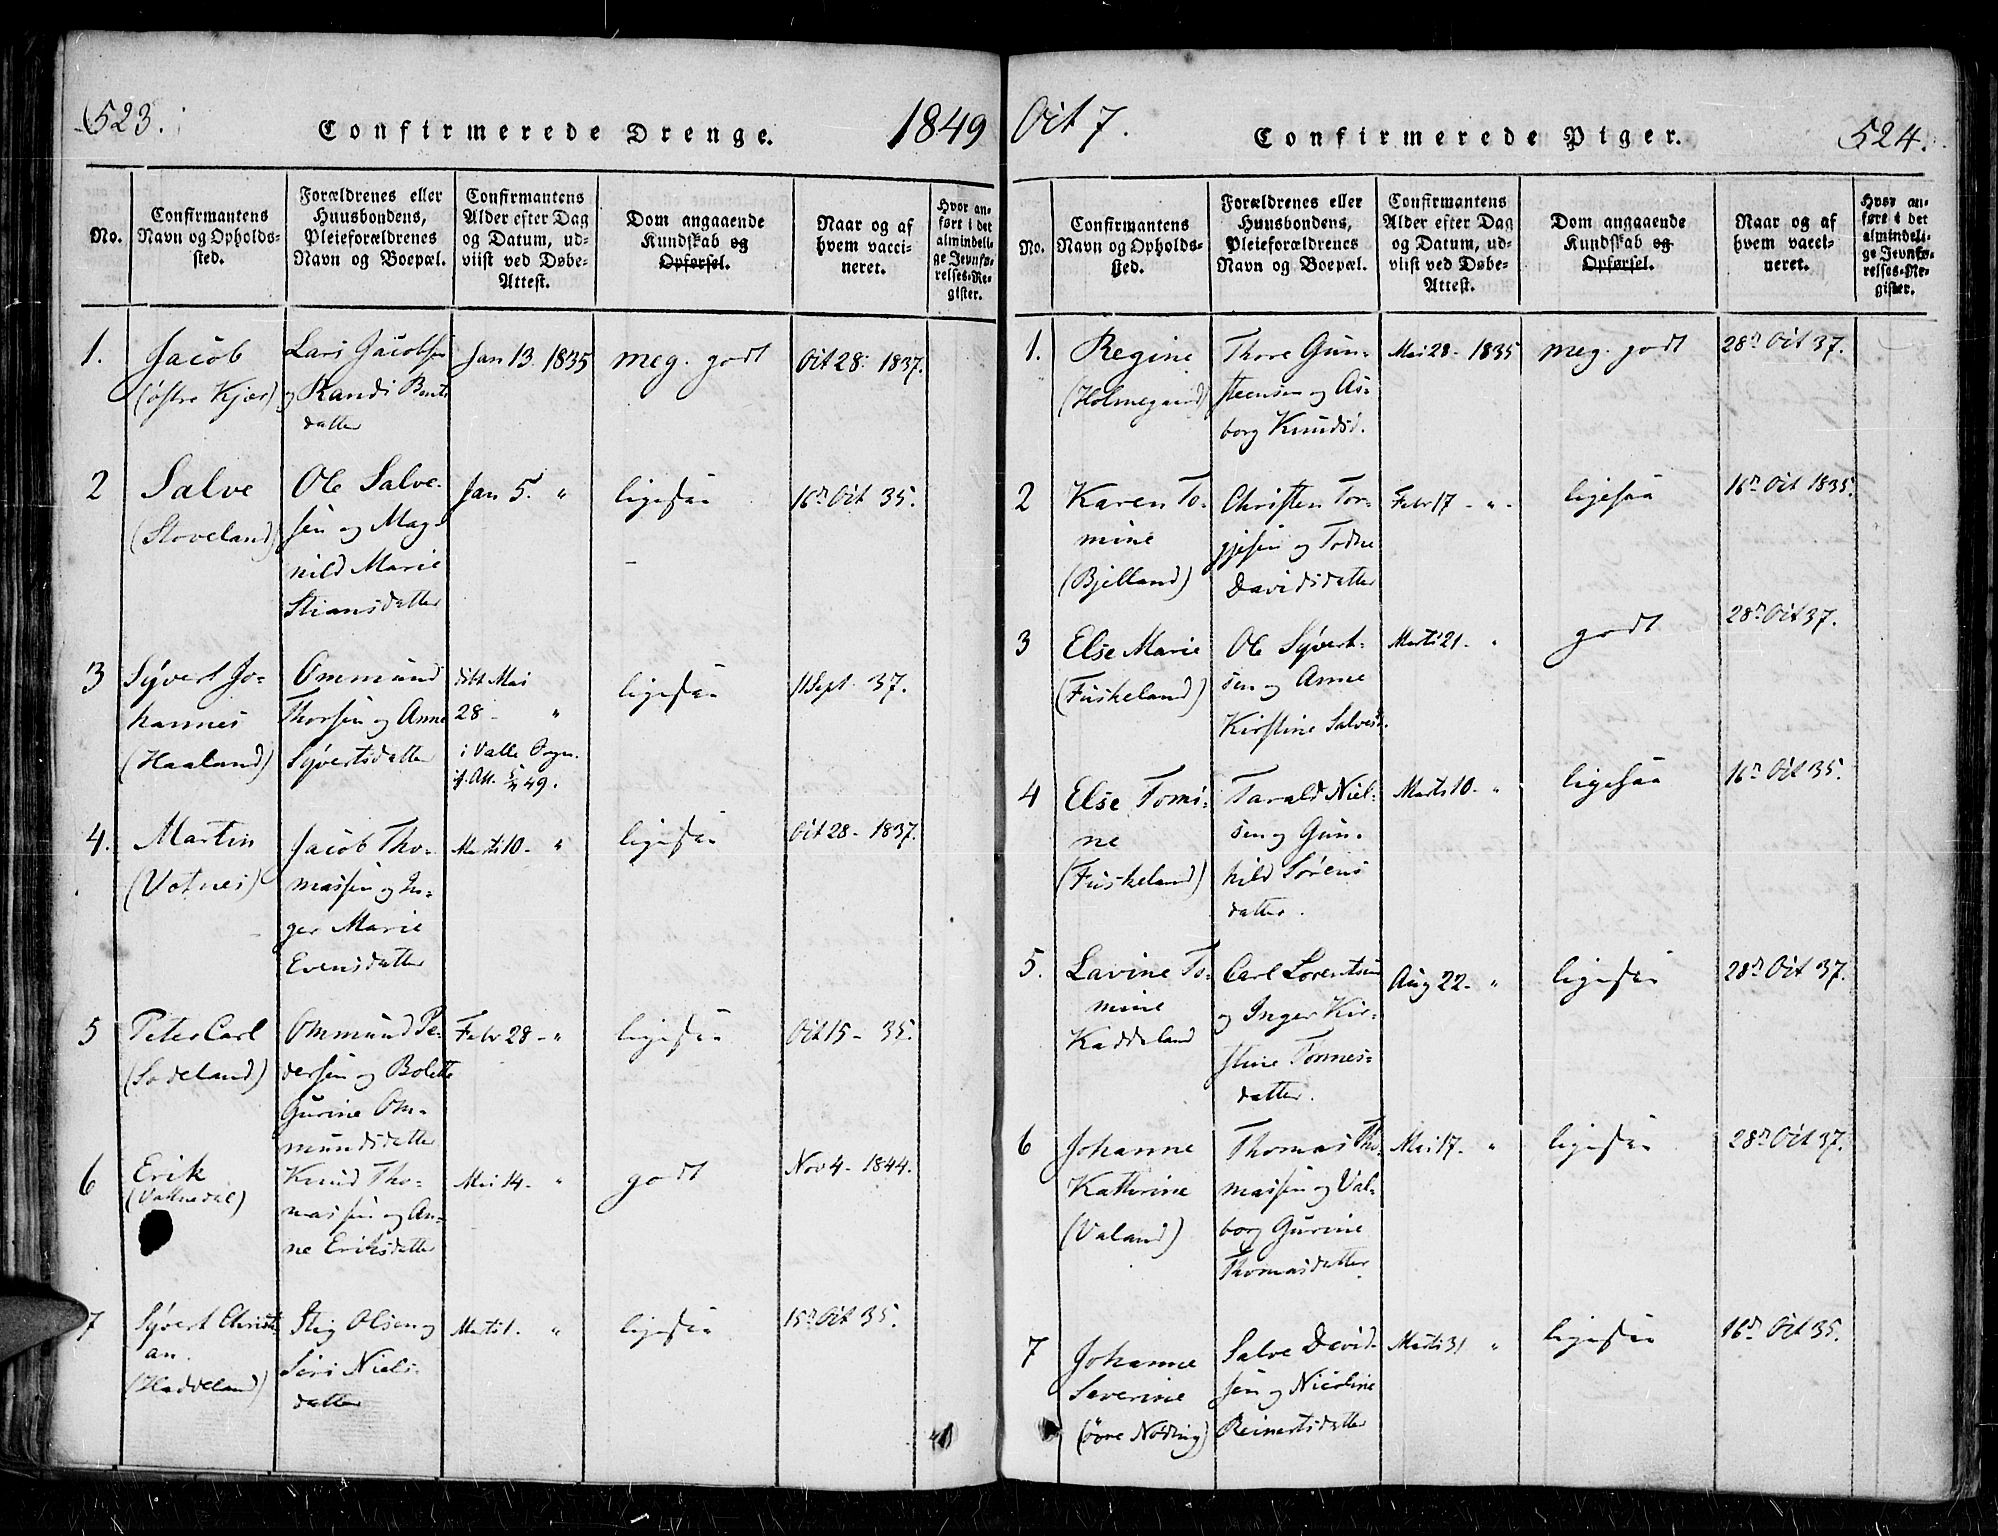 523.
Confirmerede Drenge.
1849
No.
Confirmantens
Navn og Opholds-
sted.
Forældrenes eller
Huusbondens,
Pleieforældrenes
Navn og Boepæl.
Confirmantens
Alder efter Dag
og Datum, ud-
viist ved Døbe-
Attest.
Dom angaaende
Kundskab og
Opførsel.
Naar og af
hvem vacci-
neret.
Hvor an-
ført i det
almindeli-
ge Jevnfø-
relses-Re-
gister.
1.
Jacob
(østre Kjær)
Lars Jacobsen
og Randi Bents
datter
Jan 13. 1835
meg. godt
Oct 28. 1837.
2
Salve
(Stoveland)
Ole Salve-
sen og Mag-
nild Marie
Stiansdatter
Jan 5. "
ligesaa
16de Oct 35.
3
Syvert Jo-
hannes
(Haaland)
Ommund
Thorsen og Anne
Syvertsdatter
døbt Mai
28 - "
i Valle Sogn.
ligesaa
11 Sept. 37.
4.
Martin
(Votnes)
Jacob Tho-
massen og In-
ger Marie
Evensdatter
Marts 10 - "
ligesaa
Oct 28 - 1837.
5
Peter Carl
(Sodeland)
Ommund Pe-
dersen og Bolette
Gurine Om-
mundsdatter
Febr 28 - "
ligesaa
Oct 15 - 35.
6
Erik
(Vatnedal)
Knud Tho-
massen og An-
ne Eriksdatter
Mai 14. "
godt
Nov 4 - 1844.
7
Syvert Christi
an.
(Haddeland)
Stig Olsen og
Siri Niels-
datter
Marts 1. "
ligesaa
15de Oct 35.
Oct 7.
Confirmerede Piger.
524.
No.
Confirmantens
Navn og Opholds-
sted.
Forældrenes eller
Huusbondens,
Pleieforældrenes
Navn og Boepæl.
Confirmantens
Alder efter Dag
og Datum, ud-
viist ved Døbe-
Attest.
Dom angaaende
Kundskab og
Opførsel.
Naar og af
hvem vacci-
neret.
Hvor an-
ført i det
almindeli-
ge Jevnfø-
relses-Re-
gister.
1.
Regine
(Holmegaard)
Thore Gun-
steensen og As-
borg Knudsd.
Mai 28 - 1835
meg. godt
28de Oct 37.
2
Karen To-
mine
(Bjelland)
Christen Tor-
gjesen og Todne
Davidsdatter
Febr 17 - " -
ligesaa
16de Oct 1835.
3
Else Marie
(Fuskeland)
Ole Syvert-
sen og Anne
Kirstine Salvesd.
Marts 21 - "
godt
28de Oct 37.
4
Else Tomi-
ne
(Fuskeland)
Tarald Niel-
sen og Gun-
hild Sørens
datter.
Marts 10. "
ligesaa
16de Oct 35.
5.
Lavine To-
mine
Kaddeland
Carl Lorentsen
og Inger Kir-
stine Tønnes-
datter.
Aug 22 - "
ligesaa
28de Oct 37.
6
Johanne
Kathrine
(Valand)
Thomas Tho-
massen og Val-
borg Gurine
Thomasdatter
Mai 17. "
ligesaa
28de Oct 37.
7
Johanne
Severine
(øvre Nøding)
Salve David-
sen og Nicoline
Reinertsdatter
Marts 31 "
ligesaa
16de Oct 35.